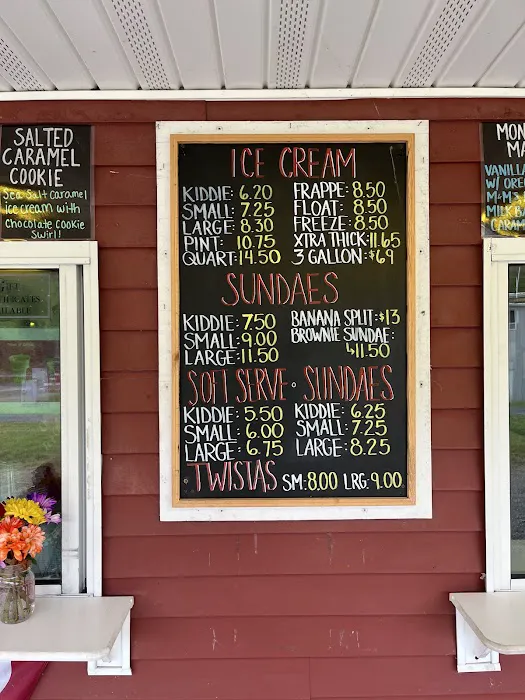 SALTED
CARAMEL
COOKIE
Sea Salt caramel
ice cream with
chocolate cookie
swirl!
ICE CREAM
KIDDIE: 6.20
SMALL: 7.25
LARGE: 8.30
PINT: 10.75
QUART: 14.50
FRAPPE: 8.50
FLOAT: 8.50
FREEZE: 8.50
XTRA THICK: 11.65
3 GALLON: $69
SUNDAES
KIDDIE: 7.50
SMALL: 9.00
LARGE: 11.50
BANANA SPLIT: $13
BROWNIE SUNDAE:
11.50
SOFT SERVE • SUNDAES
KIDDIE: 5.50
SMALL: 6.00
LARGE: 6.75
KIDDIE: 6.25
SMALL: 7.25
LARGE: 8.25
TWISTAS SM: 8.00 LRG: 9.00
MON
MA
VANILLA
W/ ORE
M&MS
MILK
CARAM